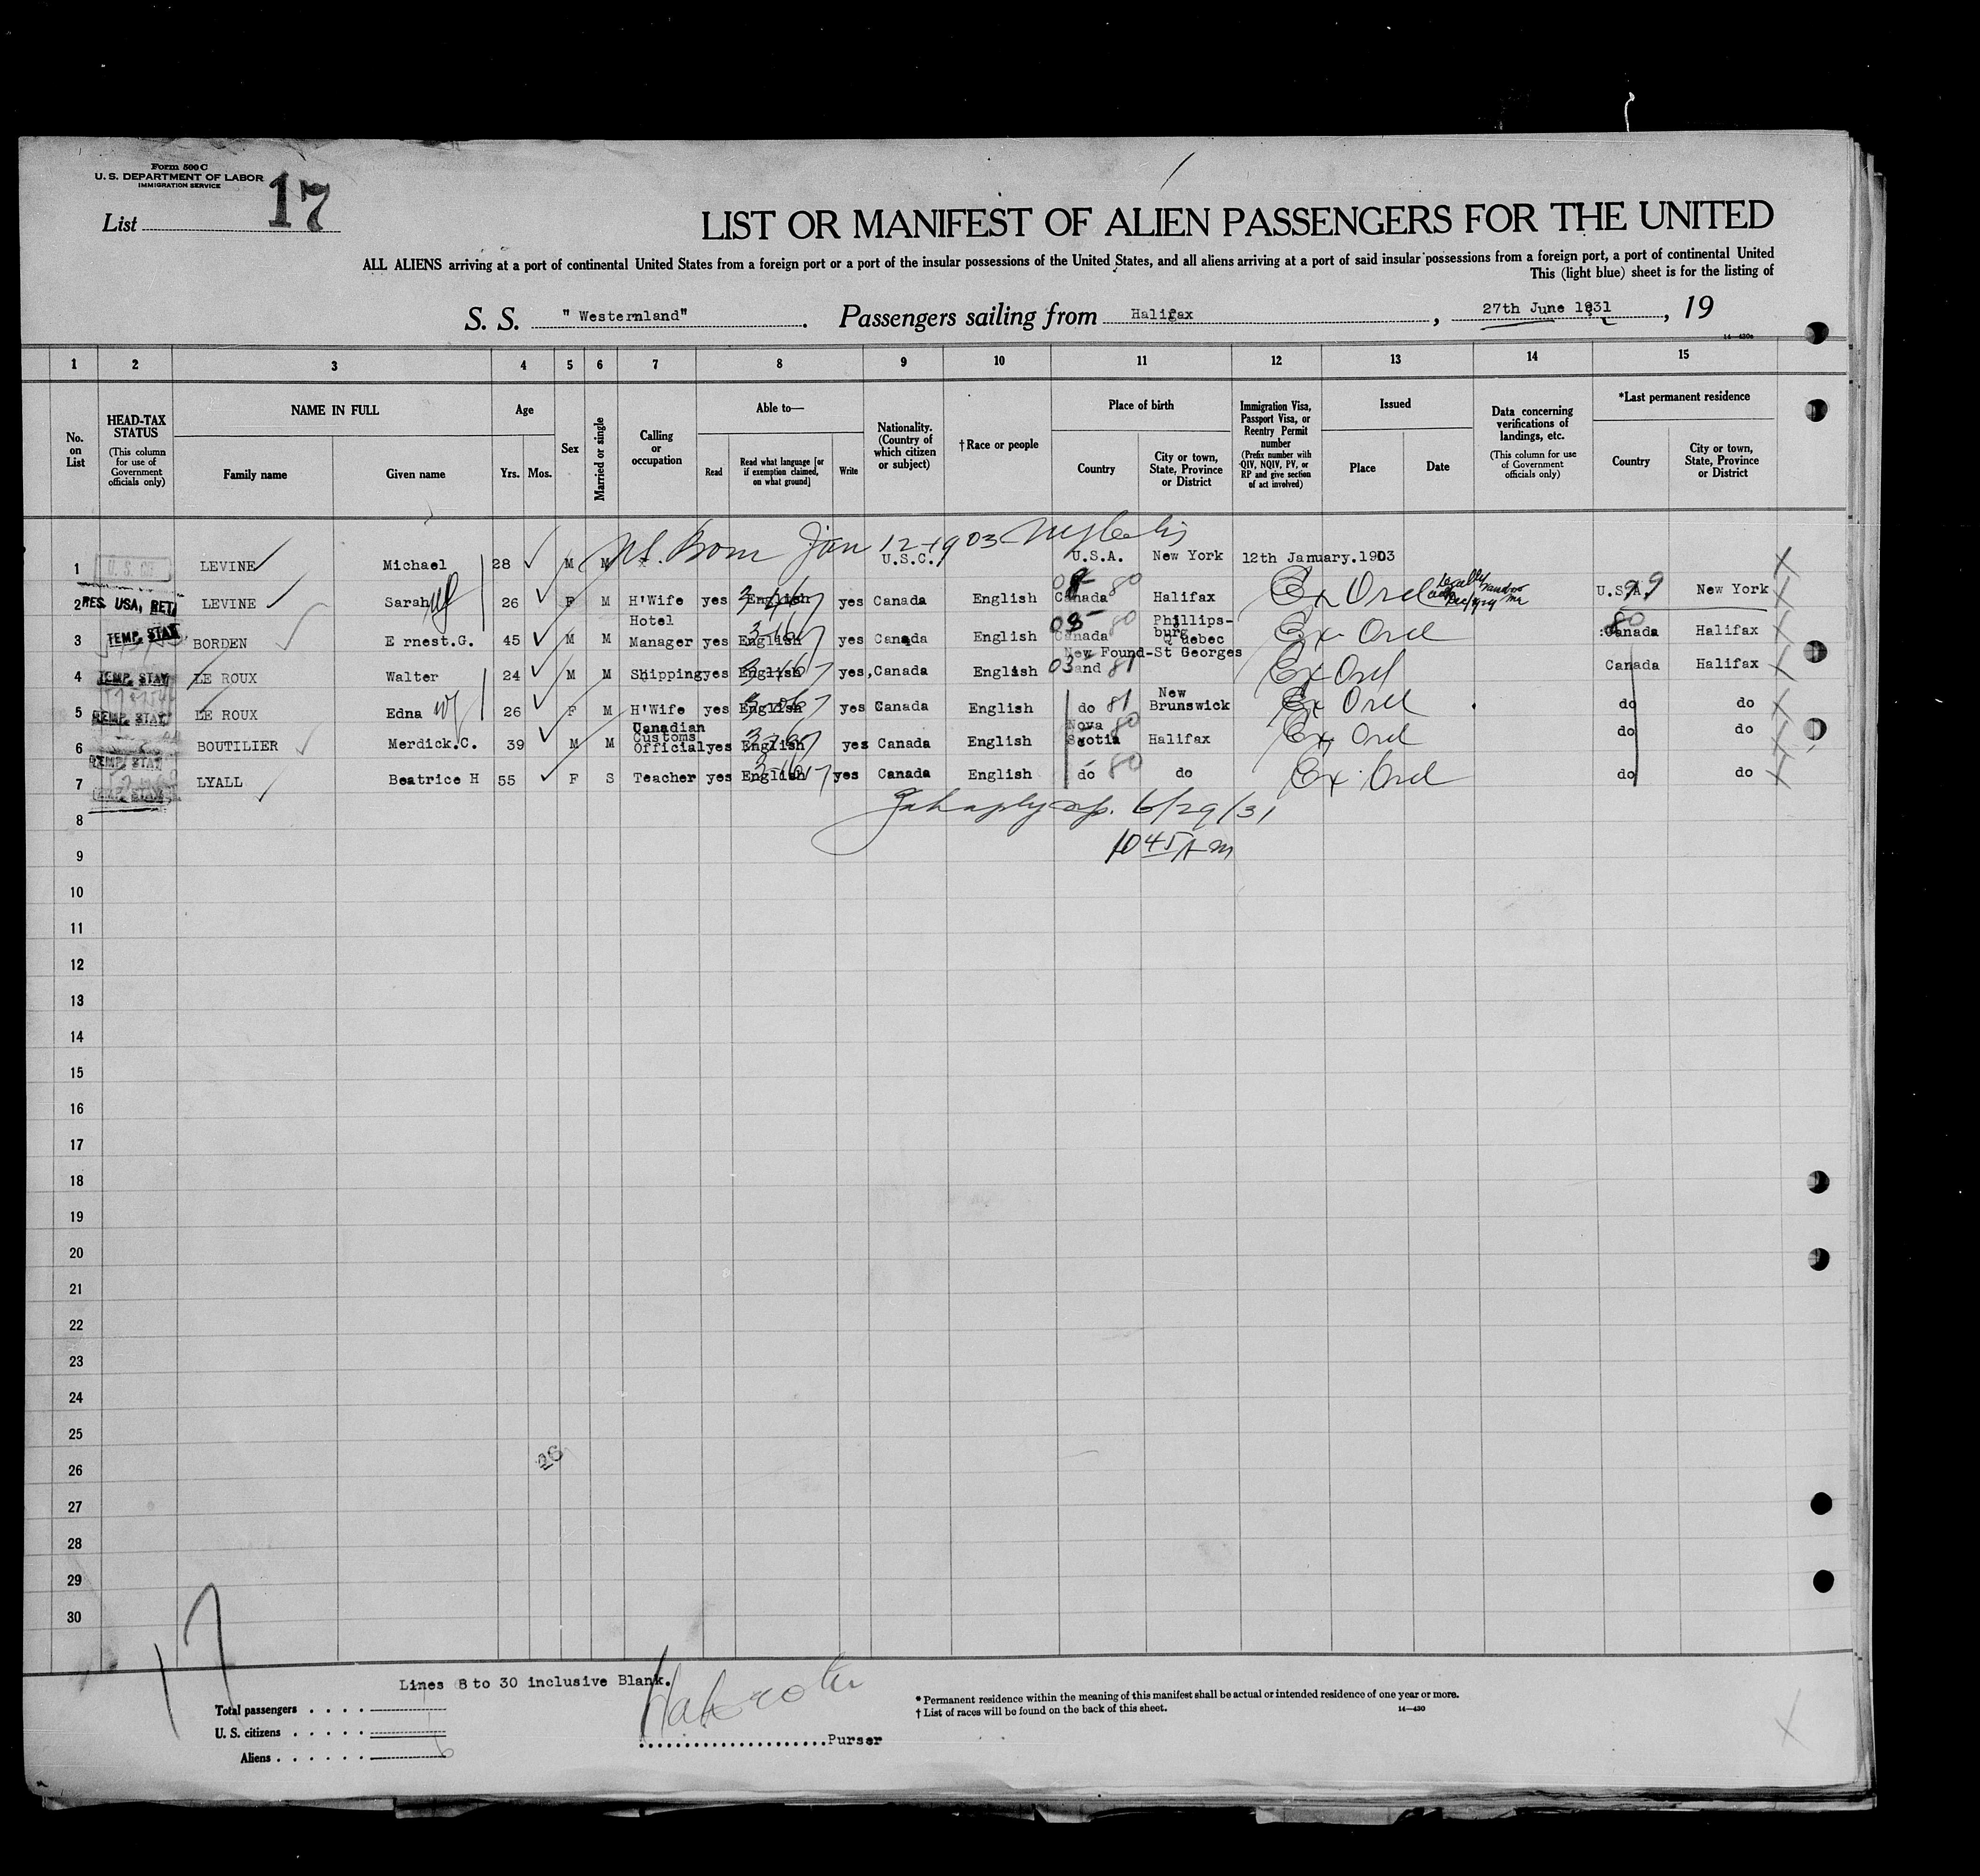 Form 500 C
U. S. DEPARTMENT OF LABOR
IMMIGRATION SERVICE
List 17
LIST OR MANIFEST OF ALIEN PASSENGERS FOR THE UNITED
ALL ALIENS arriving at a port of continental United States from a foreign port or a port of the insular possessions of the United States, and all aliens arriving at a port of said insular possessions from a foreign port, a port of continental United
This (light blue) sheet is for the listing of
S. S. " Westernland" . Passengers sailing from Halifax , 27th June 1931 , 19
14—430a
1 2 3 4 5 6 7 8 9 10 11 12 13 14 15
No. on List
HEAD-TAX STATUS (This column for use of Government officials only)
NAME IN FULL
Family name Given name
Age
Yrs. Mos.
Sex
Married or single
Calling or occupation
Able to—
Read Read what language [or if exemption claimed, on what ground] Write
Nationality. (Country of which citizen or subject)
† Race or people
Place of birth
Country City or town, State, Province or District
Immigration Visa, Passport Visa, or Reentry Permit number (Prefix number with QIV, NQIV, PV, or RP and give section of act involved)
Issued
Place Date
Data concerning verifications of landings, etc. (This column for use of Government officials only)
*Last permanent residence
Country City or town, State, Province or District
Born Jan 12-1903
1 LEVINE Michael 28 M M U.S.C. U.S.A. New York 12th January.1903
2 RES. USA, RET. LEVINE Sarah 26 F M H'Wife yes English yes Canada English Canada 80 Halifax Ex Ord U.S.A. 99 New York
3 TEMP. STAY BORDEN E rnest.G. 45 M M Hotel Manager yes English yes Canada English Canada 80 Phillips-burg Quebec Ex Ord Canada 80 Halifax
4 TEMP. STAY LE ROUX Walter 24 M M Shipping yes English yes, Canada English New Found-land 81 St Georges Ex Ord Canada Halifax
5 TEMP. STAY LE ROUX Edna 26 F M H'Wife yes English yes Canada English do 81 New Brunswick Ex Ord do do
6 TEMP. STAY BOUTILIER Merdick.C. 39 M M Canadian Customs Official yes English yes Canada English Nova Scotia 80 Halifax Ex Ord do do
7 TEMP. STAY LYALL Beatrice H 55 F S Teacher yes English yes Canada English do 80 do Ex Ord do do
8 6/29/31
9 10 45 A m
10
11
12
13
14
15
16
17
18
19
20
21
22
23
24
25
26
26
27
28
29
30
17
Lines 8 to 30 inclusive Blank.
Total passengers . . . .
U. S. citizens . . . . .
Aliens . . . . . . 6
Purser
* Permanent residence within the meaning of this manifest shall be actual or intended residence of one year or more.
† List of races will be found on the back of this sheet.
14—430